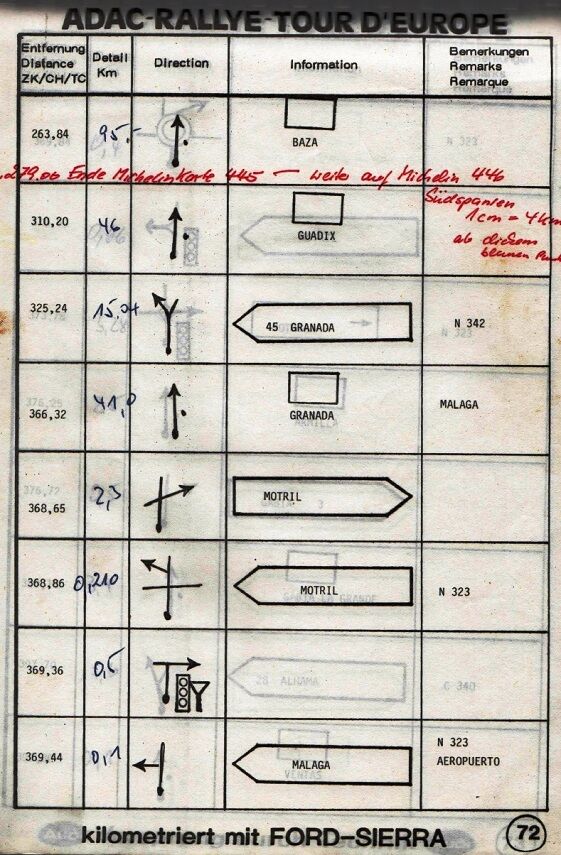 ADAC-RALLYE-TOUR D'EUROPE
Entfernung
Distance
ZK/CH/TC
Detail
Km
Direction
Information
Bemerkungen
Remarks
Remarque
263,84 95,- BAZA
279.06 Ende Michelinkarte 445 — weite auf Michelin 446
Südspanien
1cm = 4km
ab diesem
blauen
310,20 46 GUADIX
325,24 15,04 45 GRANADA N 342
366,32 41,0 GRANADA MALAGA
368,65 2,3 MOTRIL
368,86 0,210 MOTRIL N 323
369,36 0,5
28 ALHAMA C 340
369,44 0,1 MALAGA N 323
AEROPUERTO
kilometriert mit FORD-SIERRA 72